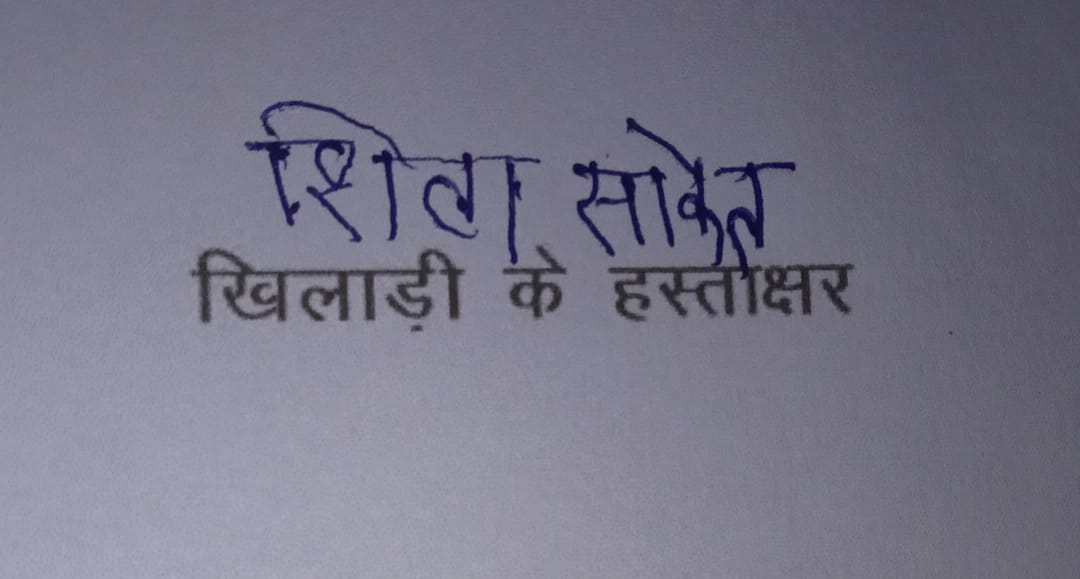 शिवा साकेत
खिलाड़ी के हस्ताक्षर